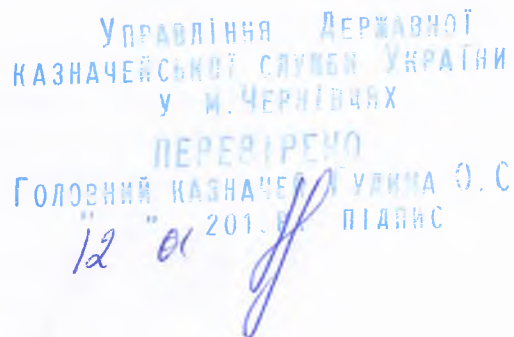 Управління Державної
казначейської служби України
у м.Чернівцях
ПЕРЕВІРЕНО
Головний казначей О.С
"12" 01 201 підпис